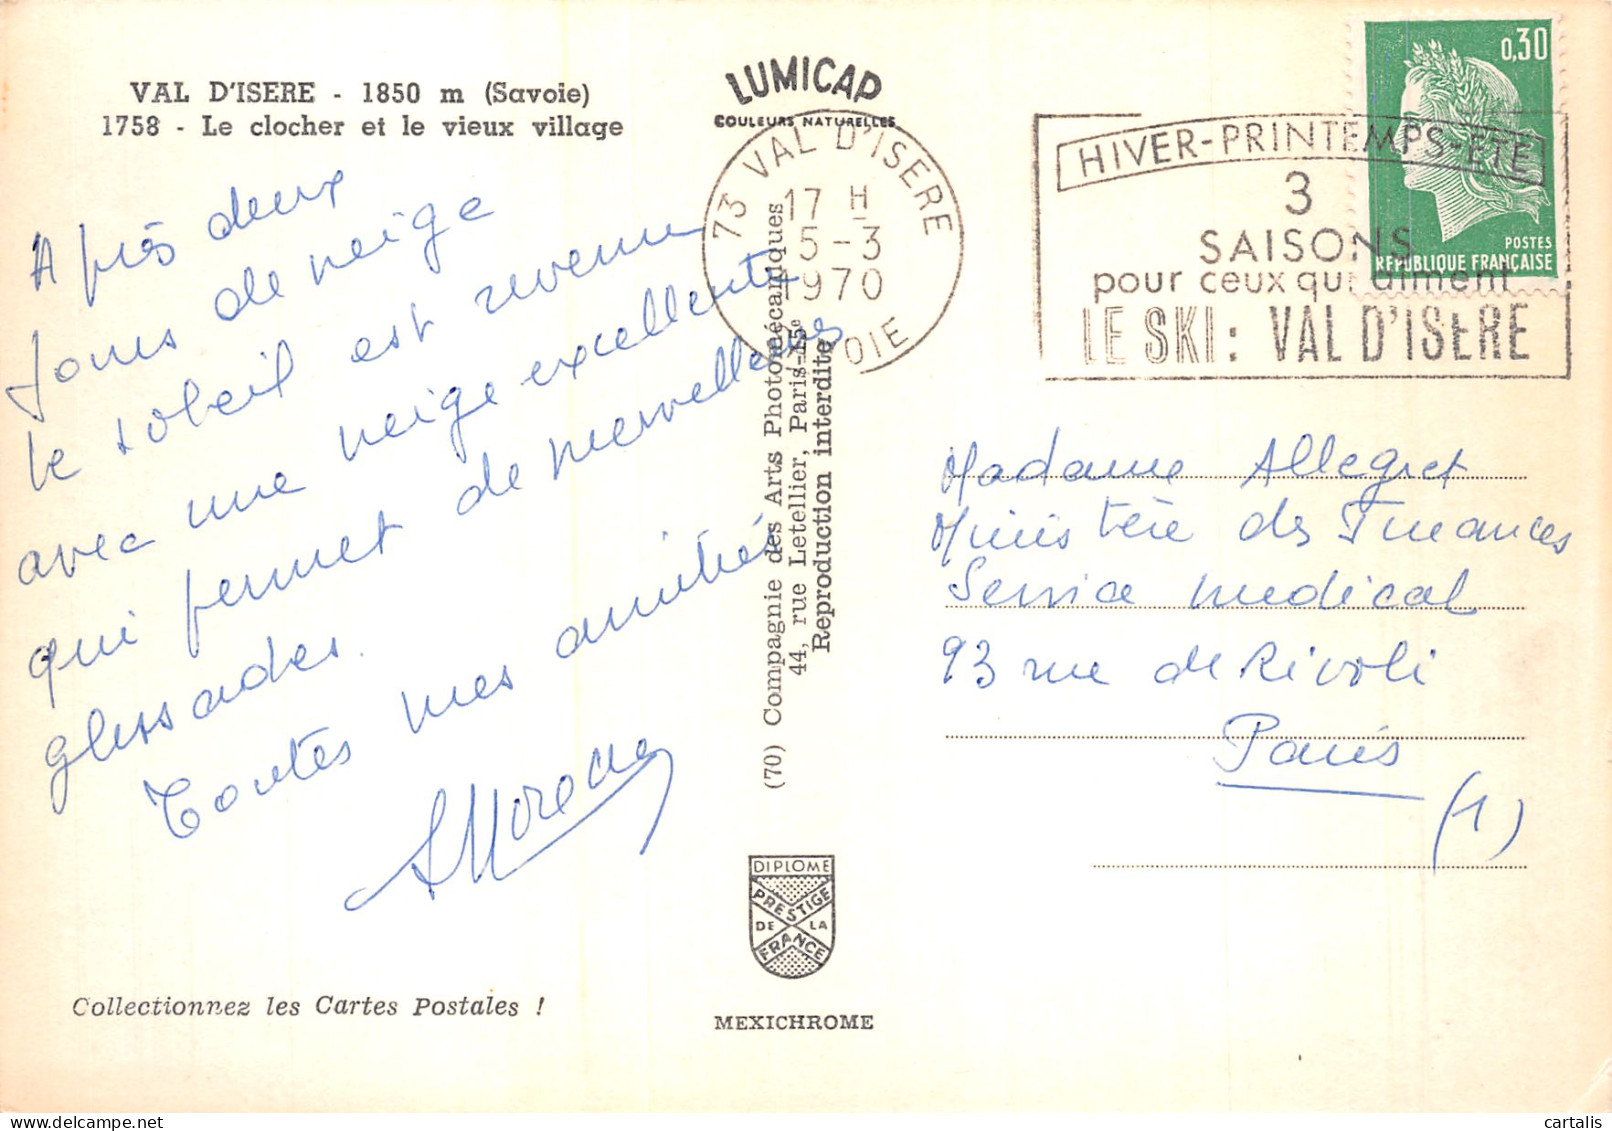 VAL D'ISERE - 1850 m (Savoie)
1758 - Le clocher et le vieux village
Après deux
jours de neige
le soleil est revenu
avec une neige excellente
qui permet de merveilleuses
glissades.
Toutes mes amitiés
Collectionnez les Cartes Postales !
LUMICAP
COULEURS NATURELLES
73 VAL D'ISERE
17 H
5-3
1970
SAVOIE
(70) Compagnie des Arts Photomécaniques
44, rue Letellier, Paris-15e
Reproduction interdite
DIPLOME
PRESTIGE
DE LA
FRANCE
MEXICHROME
HIVER-PRINTEMPS-ETE
3
SAISONS
pour ceux qui aiment
LE SKI : VAL D'ISERE
0,30
POSTES
REPUBLIQUE FRANÇAISE
Madame Allegret
Ministère des Finances
Service medical
93 rue de Rivoli
Paris
(1)
cartalis